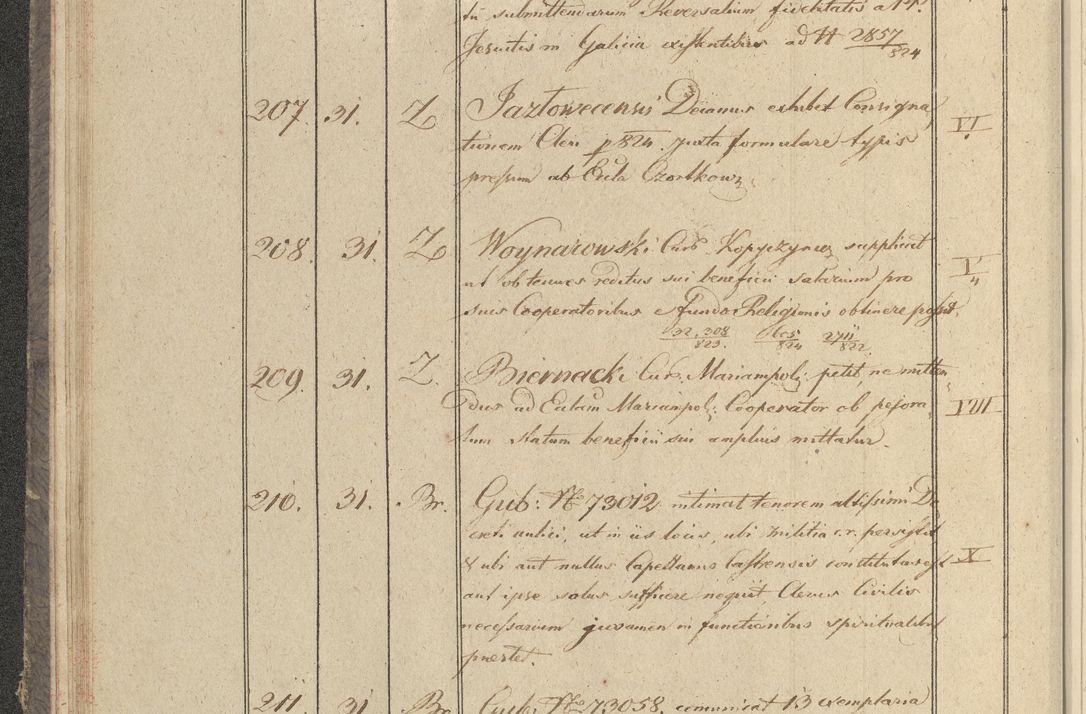 tū submittendarum Reversalium fidelitatis a PP.
Jesuitis in Galicia existentibus ad N 2857/824
207. 31. Z Jazłowecensis Decanus exhibet Consigna
tionem Cleri p 824 juxta formulare typis
pressum ab Ecclā Czortkow.
VI
208. 31. Z Woynarowski Cur. Kopyczyniec supplicat
ut ob tenues reditus sui beneficii salarium pro
suis Cooperatoribus e fundo Religionis obtinere possit.
V/4
32.308/823. 605/824 2711/822
209. 31. Z. Biernacki Cur. Mariampol: petit, ne mitten
dus ad Eccłam Mariampol: Cooperator ob pejora
tum statum beneficii sui amplius mittatur.
VIII
210. 31. Br. Gub: No 73012 intimat tenorem altissimi De
creti aulici, ut in iis locis, ubi militia c.r. persistit
& ubi aut nullus Capellanus Castrensis constitutus est
aut ipse solus sufficere nequit, Clerus Civilis
necessarium juvamen in functionibus spiritualibus
praestet.
X
211. 31. Br. Gub: No 73058. comunicat 13 exemplaria